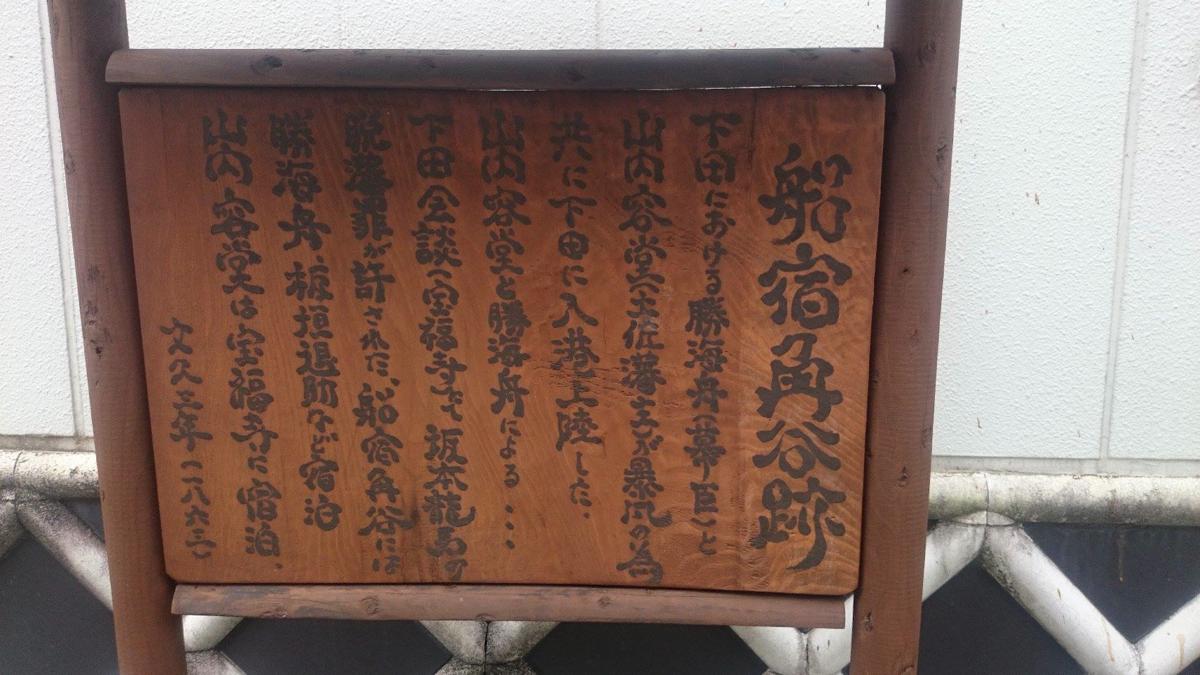 船宿角谷跡
下田における勝海舟(幕臣)と
山内容堂(土佐藩主)が暴風の為
共に下田に入港上陸した、
山内容堂と勝海舟による…
下田会談(宝福寺)で坂本龍馬の
脱藩罪が許された、船宿角谷には
勝海舟、板垣退助など宿泊
山内容堂は宝福寺に宿泊、
文久三年(一八六三)